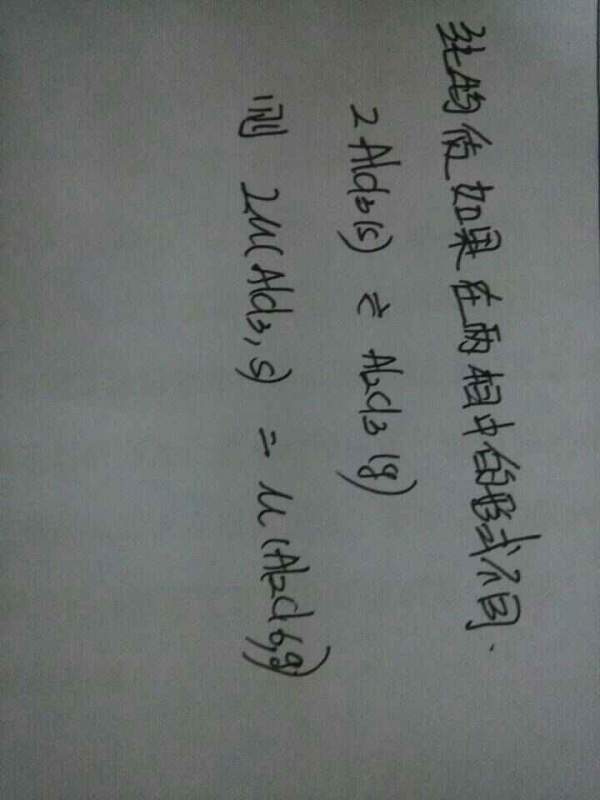 纯物质如果在两相中的形式不同.
2AlCl3(s) ⇌ Al2Cl3(g)
则 2μ(AlCl3,s) = μ(Al2Cl6,g)